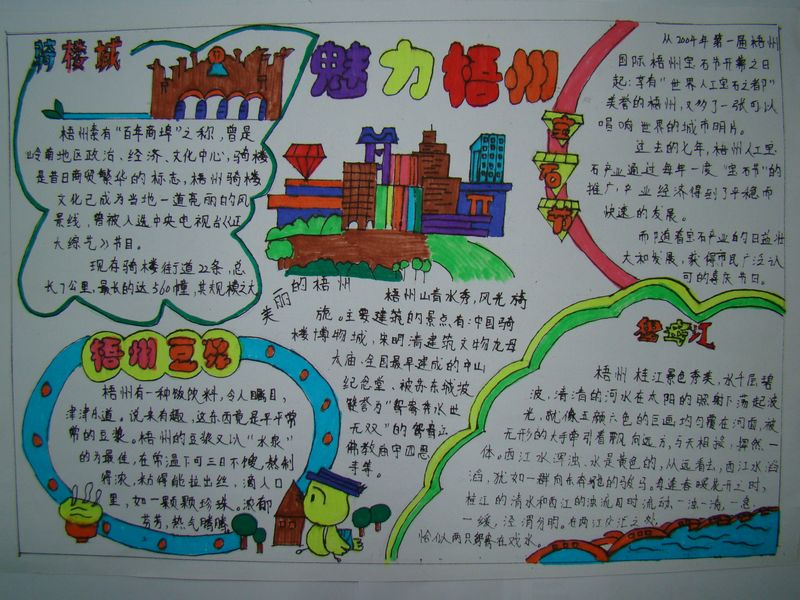 魅力梧州
骑楼城
梧州素有“百年商埠”之称，曾是
岭南地区政治、经济、文化中心，骑楼
是昔日商贸繁华的标志，梧州骑楼
文化已成为当地一道亮丽的风
景线，曾被入选中央电视台《正
大综艺》节目。
现存骑楼街道22条，总
长7公里，最长的达560幢，其规模之大
宝石节
从2004年第一届梧州
国际梧州宝石节开幕之日
起，享有“世界人工宝石之都”
美誉的梧州，又多了一张可以
唱响世界的城市明片。
过去的七年，梧州人工宝
石产业通过每年一度“宝石节”的
推广，产业经济得到了平稳而
快速的发展。
而随着宝石产业的日益壮
大和发展，获得市民广泛认
可的喜庆节日。
美丽的梧州
梧州山青水秀，风光旖
旎。主要建筑的景点有：中国骑
楼博物城，朱明清建筑文物龙母
太庙，全国最早建成的中山
纪念堂，被苏东城坡
赞誉为“鸳鸯秀水世
无双”的鸳鸯江
佛教商中四恩
寺等。
梧州豆浆
梧州有一种饭饮料，令人瞩目，
津津乐道。说来有趣，这东西竟是平平常
常的豆浆。梧州的豆浆又以“水泉”
的为最佳，在常温下可三日不馊，熬制
得浓，粘得能拉出丝，滴人口
里，如一颗颗珍珠。浓郁
芬芳，热气腾腾
鸳鸯江
梧州桂江景色秀美，水千层碧
波，清清的河水在太阳的照射下荡起波
光，就像五颜六色的巨画均匀覆在河面，被
无形的大手牵引着飘向远方，与天相接，浑然一
体。西江水浑浊、水是黄色的，从远看去，西江水滔
滔，犹如一群向东奔跑的骏马。每逢春暖花开之时，
桂江的清水和西江的浊流同时流动，一浊一清，一急
一缓，泾渭分明。在两江交汇之处，
恰似两只鸳鸯在戏水。